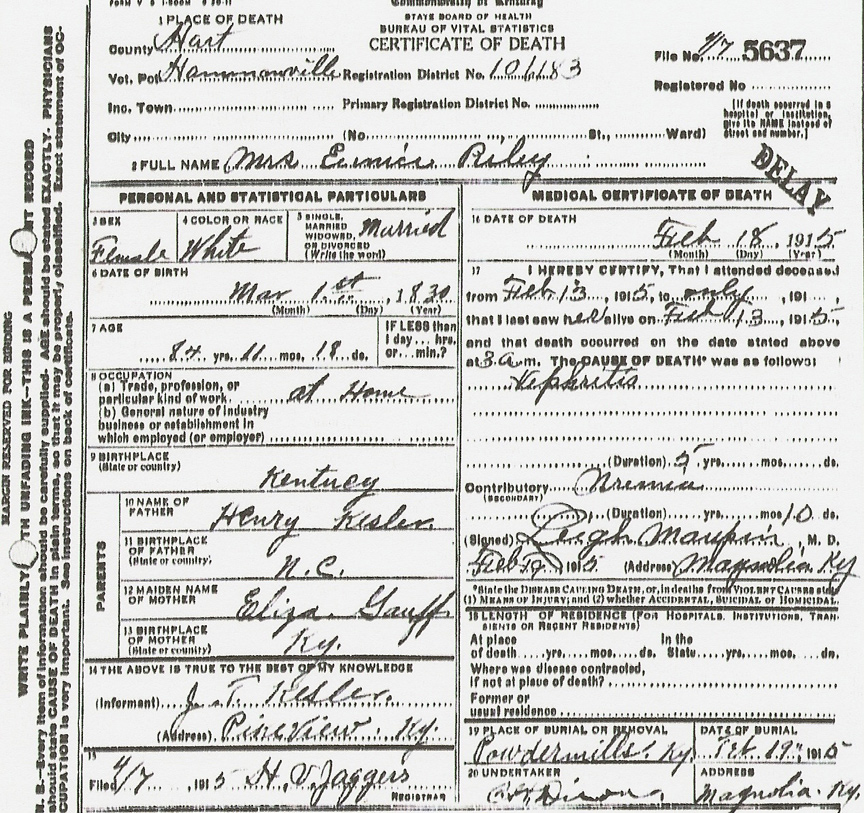 Commonwealth of Kentucky
STATE BOARD OF HEALTH
BUREAU OF VITAL STATISTICS
CERTIFICATE OF DEATH
1 PLACE OF DEATH
County Hart
Vot. Pct Hammonville Registration District No. 101183
File No. 4/7 5637
Registered No
Inc. Town Primary Registration District No.
City (No St., Ward)
[If death occurred in a
hospital or institution,
give its NAME instead of
street and number.]
2 FULL NAME Mrs Eunice Riley
DELAY
PERSONAL AND STATISTICAL PARTICULARS
3 SEX Female
4 COLOR OR RACE White
5 SINGLE, MARRIED WIDOWED, OR DIVORCED (Write the word) Married
6 DATE OF BIRTH
Mar 1st, 1830
(Month) (Day) (Year)
7 AGE
84 yrs. 11 mos. 18 ds.
IF LESS than
1 day... hrs.
or... min.?
8 OCCUPATION
(a) Trade, profession, or
particular kind of work. at Home
(b) General nature of industry
business or establishment in
which employed (or employer)
9 BIRTHPLACE
(State or country)
Kentucy
PARENTS
10 NAME OF
FATHER
Henry Kesler.
11 BIRTHPLACE
OF FATHER
(State or country)
N.C.
12 MAIDEN NAME
OF MOTHER
Eliza Gauff
13 BIRTHPLACE
OF MOTHER
(State or country)
Ky.
14 THE ABOVE IS TRUE TO THE BEST OF MY KNOWLEDGE
(Informant) J. T. Kesler.
(Address) Pineview Ky.
15
Filed 4/7, 1915 H. V. Jaggers
REGISTRAR
MEDICAL CERTIFICATE OF DEATH
16 DATE OF DEATH
Feb 18, 1915
(Month) (Day) (Year)
17 I HEREBY CERTIFY, That I attended deceased
from Feb 13, 1915, to only, 191
that I last saw her alive on Feb 13, 1915,
and that death occurred on the date stated above
at 3 a m. The CAUSE OF DEATH* was as follows:
Nephritis
(Duration) 5 yrs. mos. ds.
Contributory Uremia
(SECONDARY)
(Duration) yrs. mos 10 ds.
(Signed) Leigh Maupin, M. D.
Feb 1915 (Address) Magnolia Ky
*State the DISEASE CAUSING DEATH, or, in deaths from VIOLENT CAUSES state
(1) MEANS OF INJURY; and (2) whether ACCIDENTAL, SUICIDAL or HOMICIDAL.
18 LENGTH OF RESIDENCE (FOR HOSPITALS, INSTITUTIONS, TRAN-
SIENTS OR RECENT RESIDENTS)
At place In the
of death yrs. mos. ds. State yrs. mos. ds.
Where was disease contracted,
if not at place of death?
Former or
usual residence
19 PLACE OF BURIAL OR REMOVAL
Powdermills. Ky.
DATE OF BURIAL
Feb 19, 1915
20 UNDERTAKER
Dixon
ADDRESS
Magnolia. Ky.
MARGIN RESERVED FOR BINDING
WRITE PLAINLY WITH UNFADING INK—THIS IS A PERMANENT RECORD
N. B.—Every item of information should be carefully supplied. AGE should be stated EXACTLY. PHYSICIANS
should state CAUSE OF DEATH in plain terms, so that it may be properly classified. Exact statement of OC-
CUPATION is very important. See instructions on back of certificate.